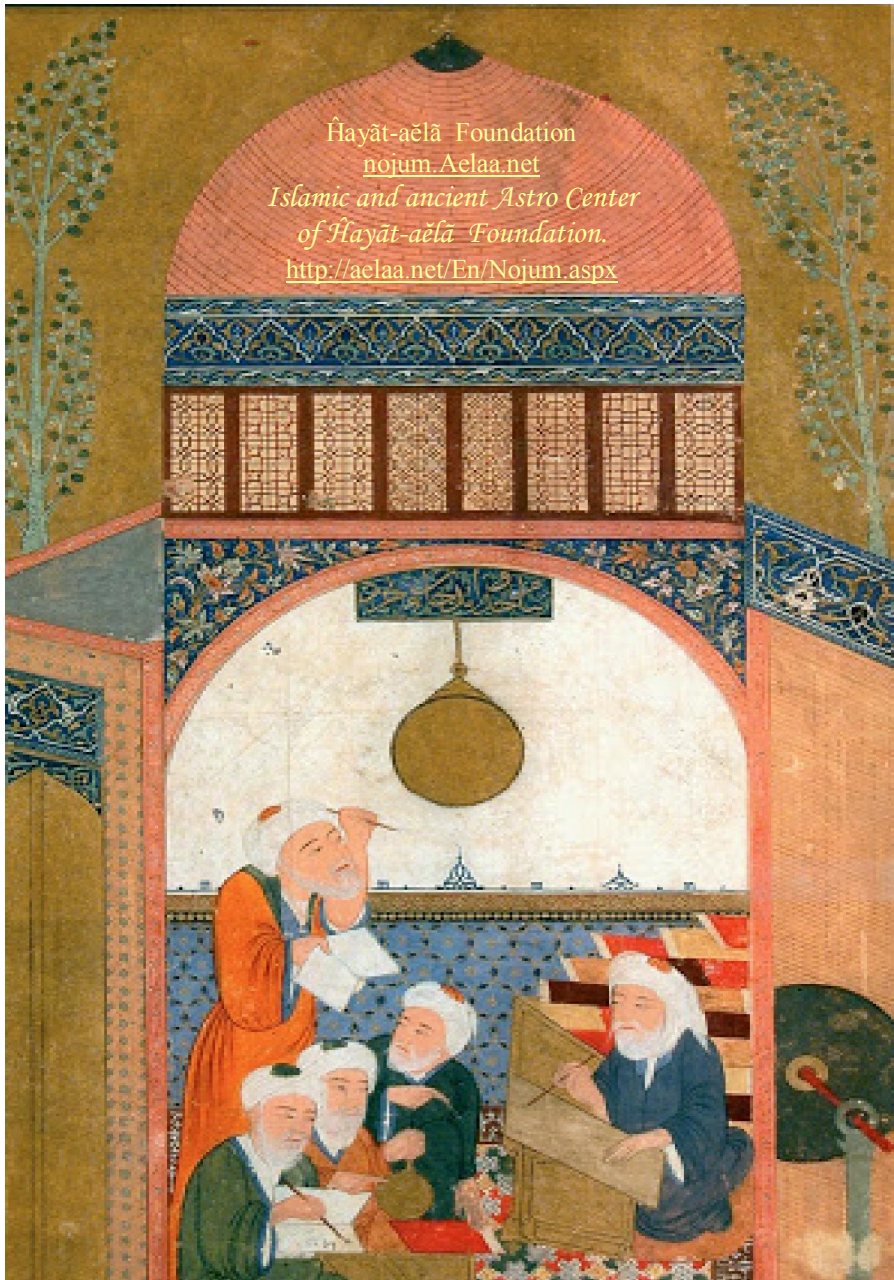 Ĥayãt-aĕlã Foundation
nojum.Aelaa.net
Islamic and ancient Astro Center
of Ĥayãt-aĕlã Foundation.
http://aelaa.net/En/Nojum.aspx